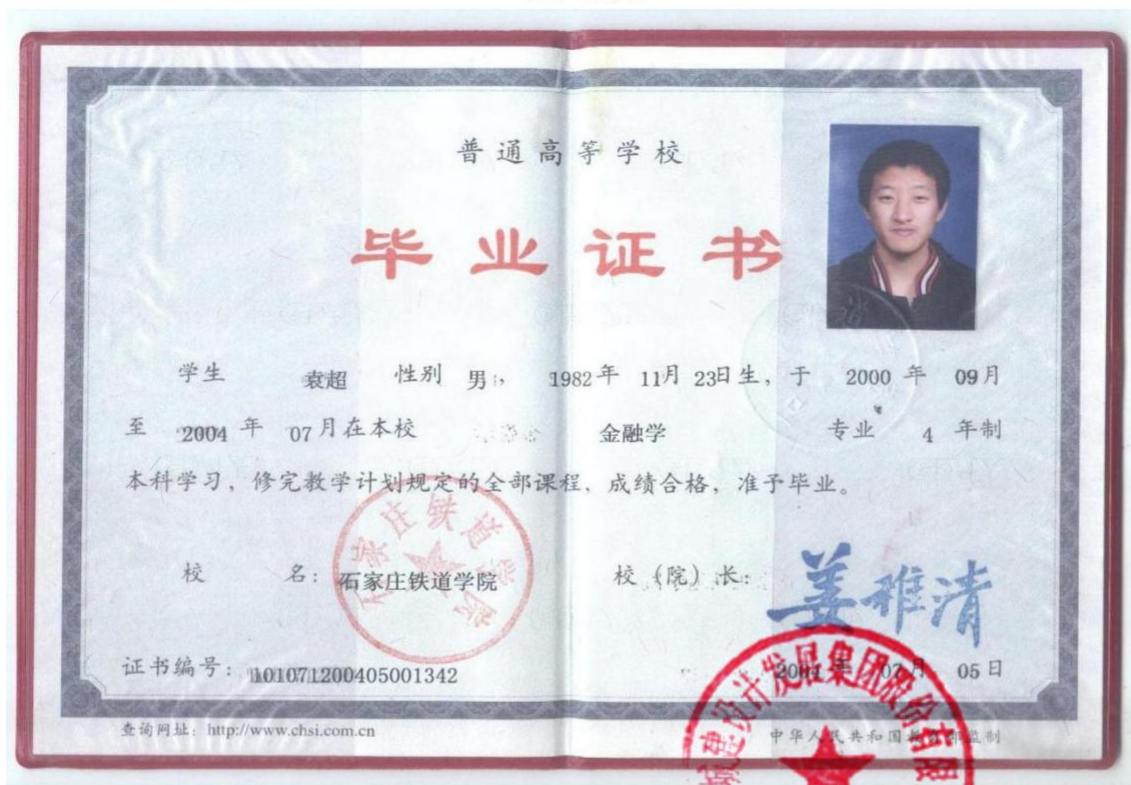 普通高等学校
毕业证书
学生 袁超 性别 男, 1982年 11月 23日生, 于 2000 年 09月
至 2004 年 07月在本校 金融学 专业 4 年制
本科学习, 修完教学计划规定的全部课程, 成绩合格, 准予毕业。
校 名: 石家庄铁道学院
石家庄铁道学院
校 (院) 长:
证书编号: 101071200405001342
2004 年 07月 05日
查询网址: http://www.chsi.com.cn
中华人民共和国教育部监制
城建设计发展集团股份有限